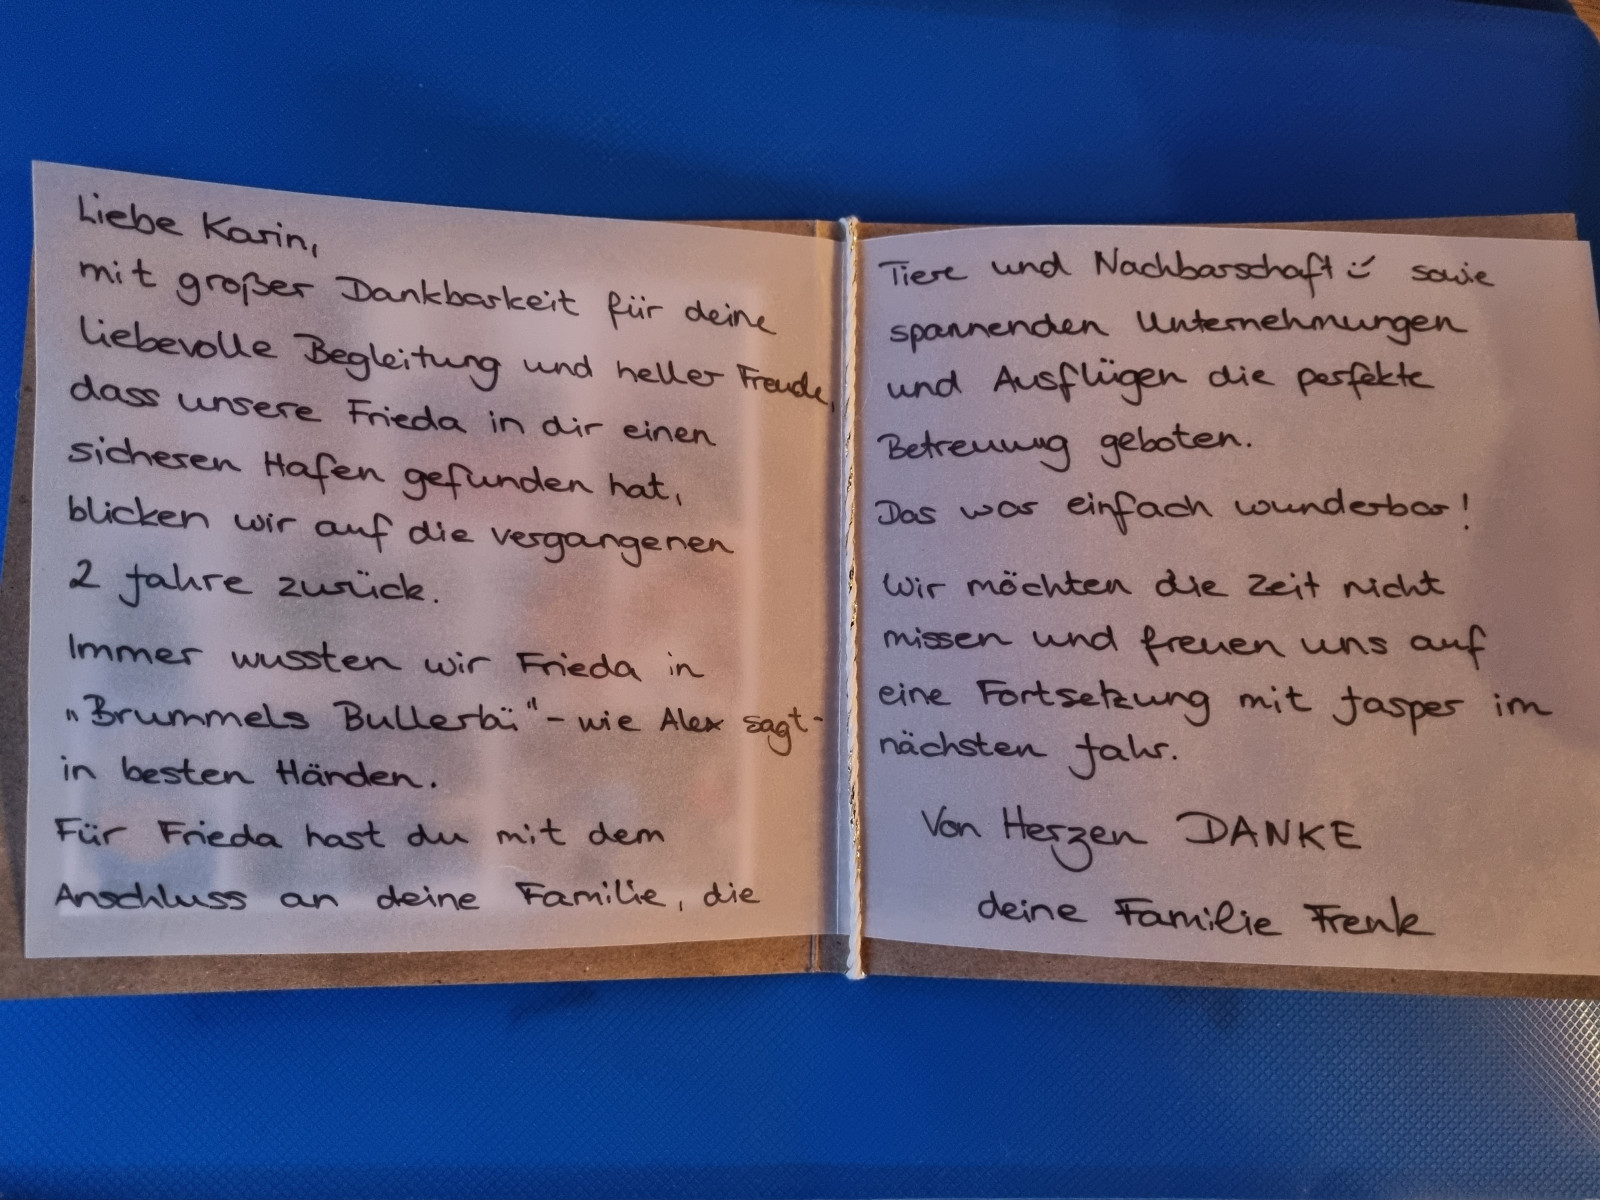 Liebe Karin,
mit großer Dankbarkeit für deine
liebevolle Begleitung und heller Freude,
dass unsere Frieda in dir einen
sicheren Hafen gefunden hat,
blicken wir auf die vergangenen
2 Jahre zurück.
Immer wussten wir Frieda in
„Brummels Bullerbü" - wie Alex sagt -
in besten Händen.
Für Frieda hast du mit dem
Anschluss an deine Familie, die
Tiere und Nachbarschaft sowie
spannenden Unternehmungen
und Ausflügen die perfekte
Betreuung geboten.
Das war einfach wunderbar!
Wir möchten die Zeit nicht
missen und freuen uns auf
eine Fortsetzung mit Jasper im
nächsten Jahr.
Von Herzen DANKE
deine Familie Frenk